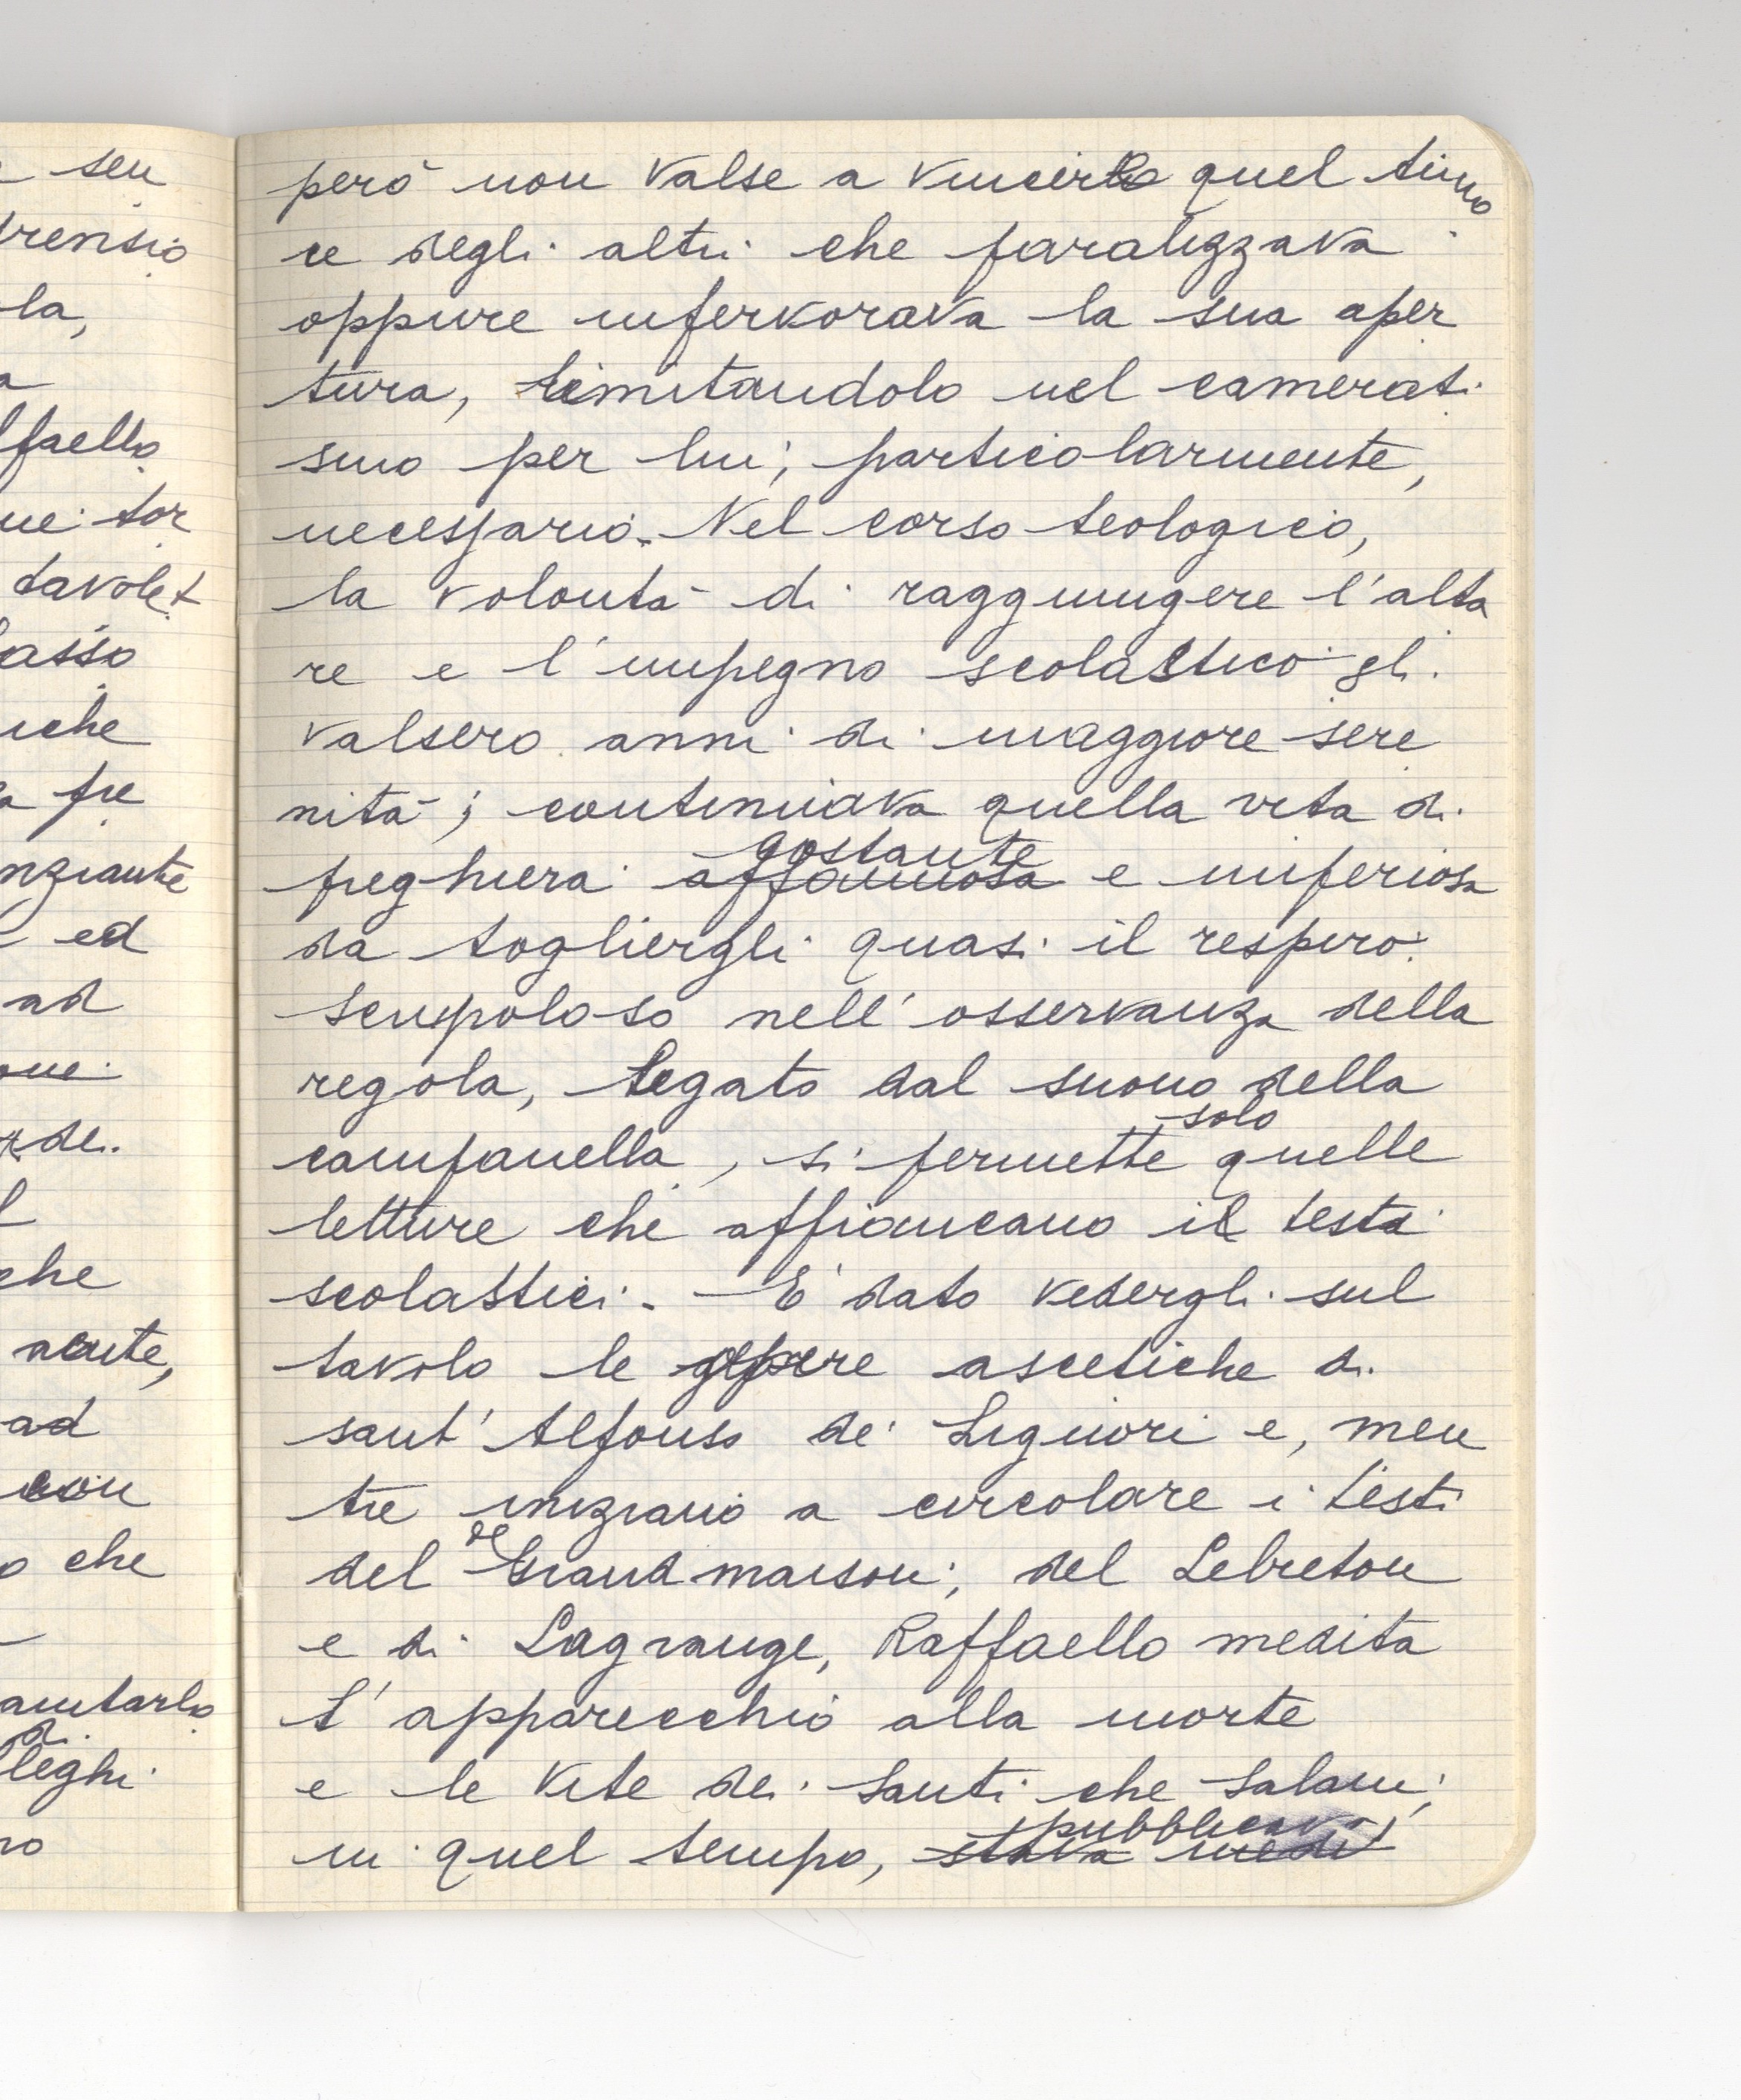 seu
prensio
la,
a
ffaello
ue tor
tavolet
asso
iche
a pre
nziante
ed
ad
one
rde.
l
che
acute,
ad
con
o che
amtarlo
di
lleghi
no
però non valse a vincerlo quel timo
re degli altri che paralizzava
oppure infervorava la sua aper
tura, limitandolo nel camerati
smo per lui, particolarmente,
necessario. Nel corso teologico,
la volontà di raggiungere l'alta
re e l'impegno scolastico gli
valsero anni di maggiore sere
nità; continuava quella vita di
costante
preghiera affannosa e imperiosa
da togliergli quasi il respiro.
Scrupoloso nell'osservanza della
regola, legato dal suono della
solo
campanella, si permette quelle
letture che affiancano i testi
scolastici. È dato vedergli sul
tavolo le opere ascetiche di
sant'Alfonso de' Liguori e, men
tre iniziano a circolare i testi
de
del Grandmaison, del Lebreton
e di Lagrange, Raffaello medita
L'apparecchio alla morte
e le Vite dei Santi che Salani,
pubblicava
in quel tempo, stava